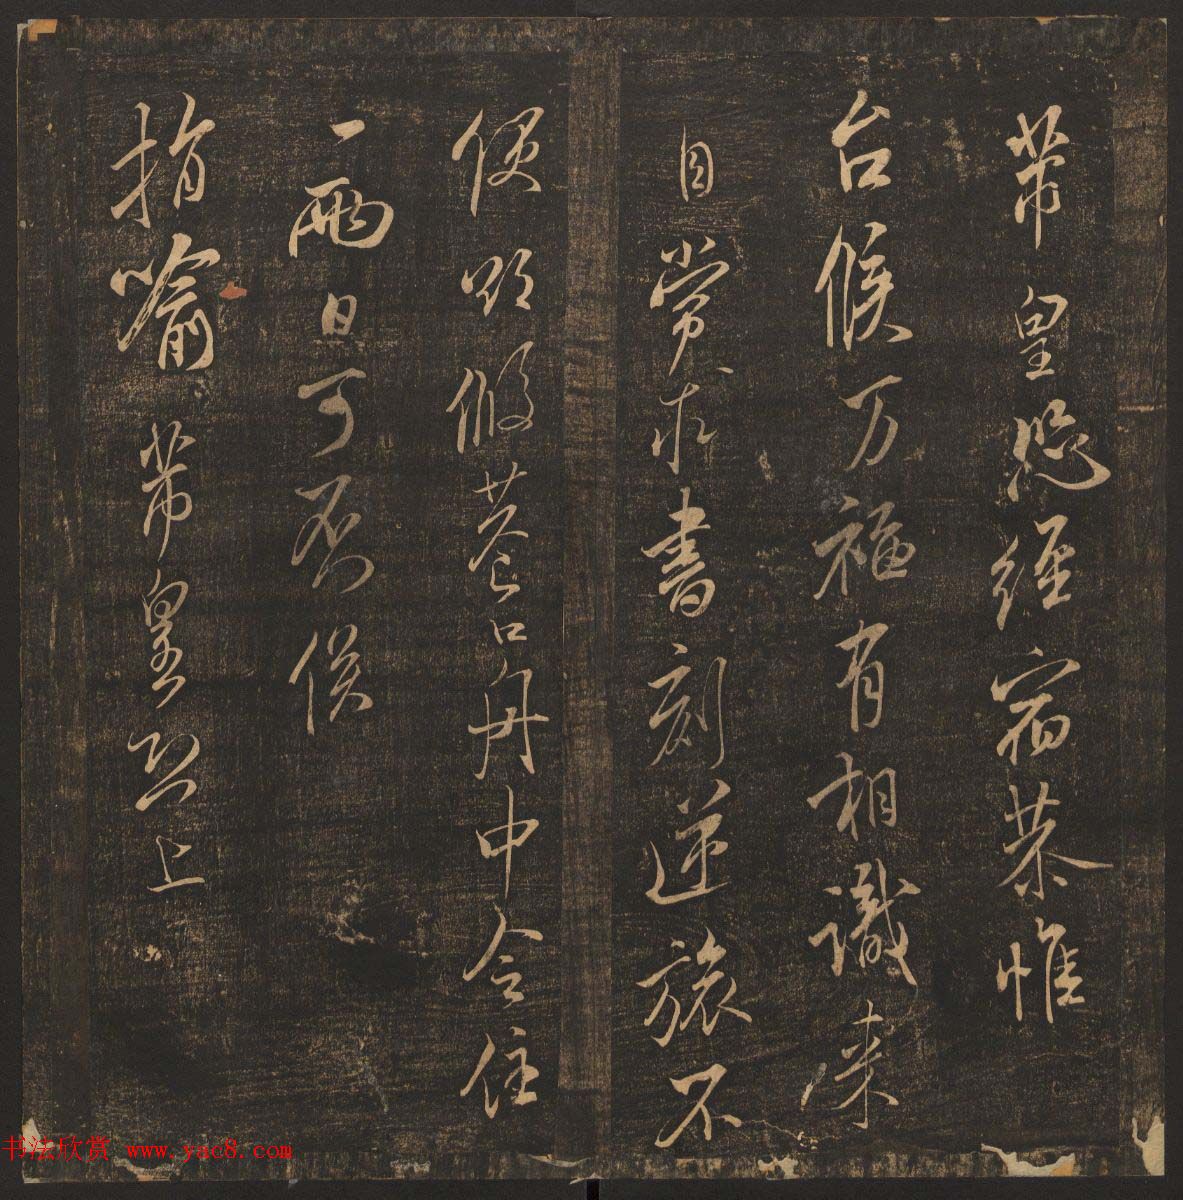 芾皇恐經宿恭惟
台候万福有相識来
自常求書刻逆旅不
便欲假蒼口舟中令住
一兩日可否俟
指喻芾皇恐上
书法欣赏 www.yac8.com